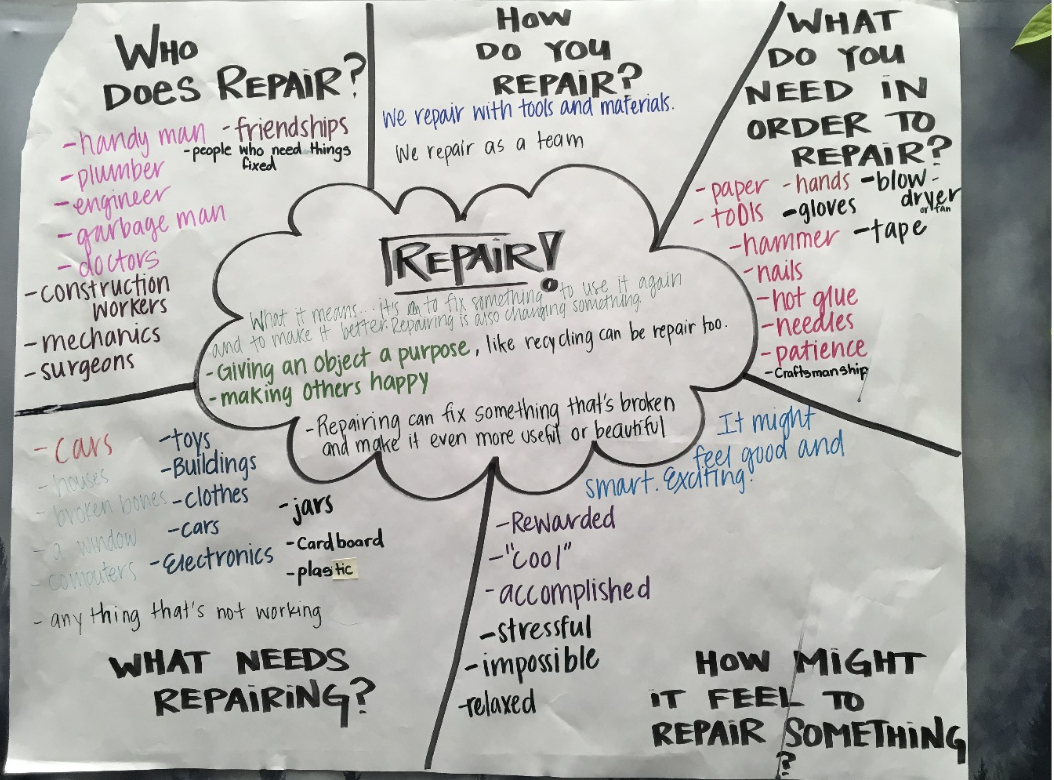 WHO
DOES REPAIR?
-handy man
-plumber
-engineer
-garbage man
-doctors
-construction
workers
-mechanics
-surgeons
-friendships
-people who need things
fixed
HOW
DO YOU
REPAIR?
We repair with tools and materials.
We repair as a team
WHAT
DO YOU
NEED IN
ORDER TO
REPAIR?
-paper
-tools
-hammer
-nails
-hot glue
-needles
-patience
-Craftsmanship
-hands
-gloves
-blow-
dryer
or fan
-tape
REPAIR!
What it means... it's to fix something to use it again
and to make it better. Repairing is also changing something.
-Giving an object a purpose, like recycling can be repair too.
-making others happy
-Repairing can fix something that's broken
and make it even more useful or beautiful
-cars
-houses
-broken bones
-a window
-computers
-any thing that's not working
-toys
-Buildings
-clothes
-cars
-Electronics
-jars
-Cardboard
-plastic
WHAT NEEDS
REPAIRING?
It might
feel good and
smart. Exciting!
-Rewarded
-"cool"
-accomplished
-stressful
-impossible
-relaxed
HOW MIGHT
IT FEEL TO
REPAIR SOMETHING
?